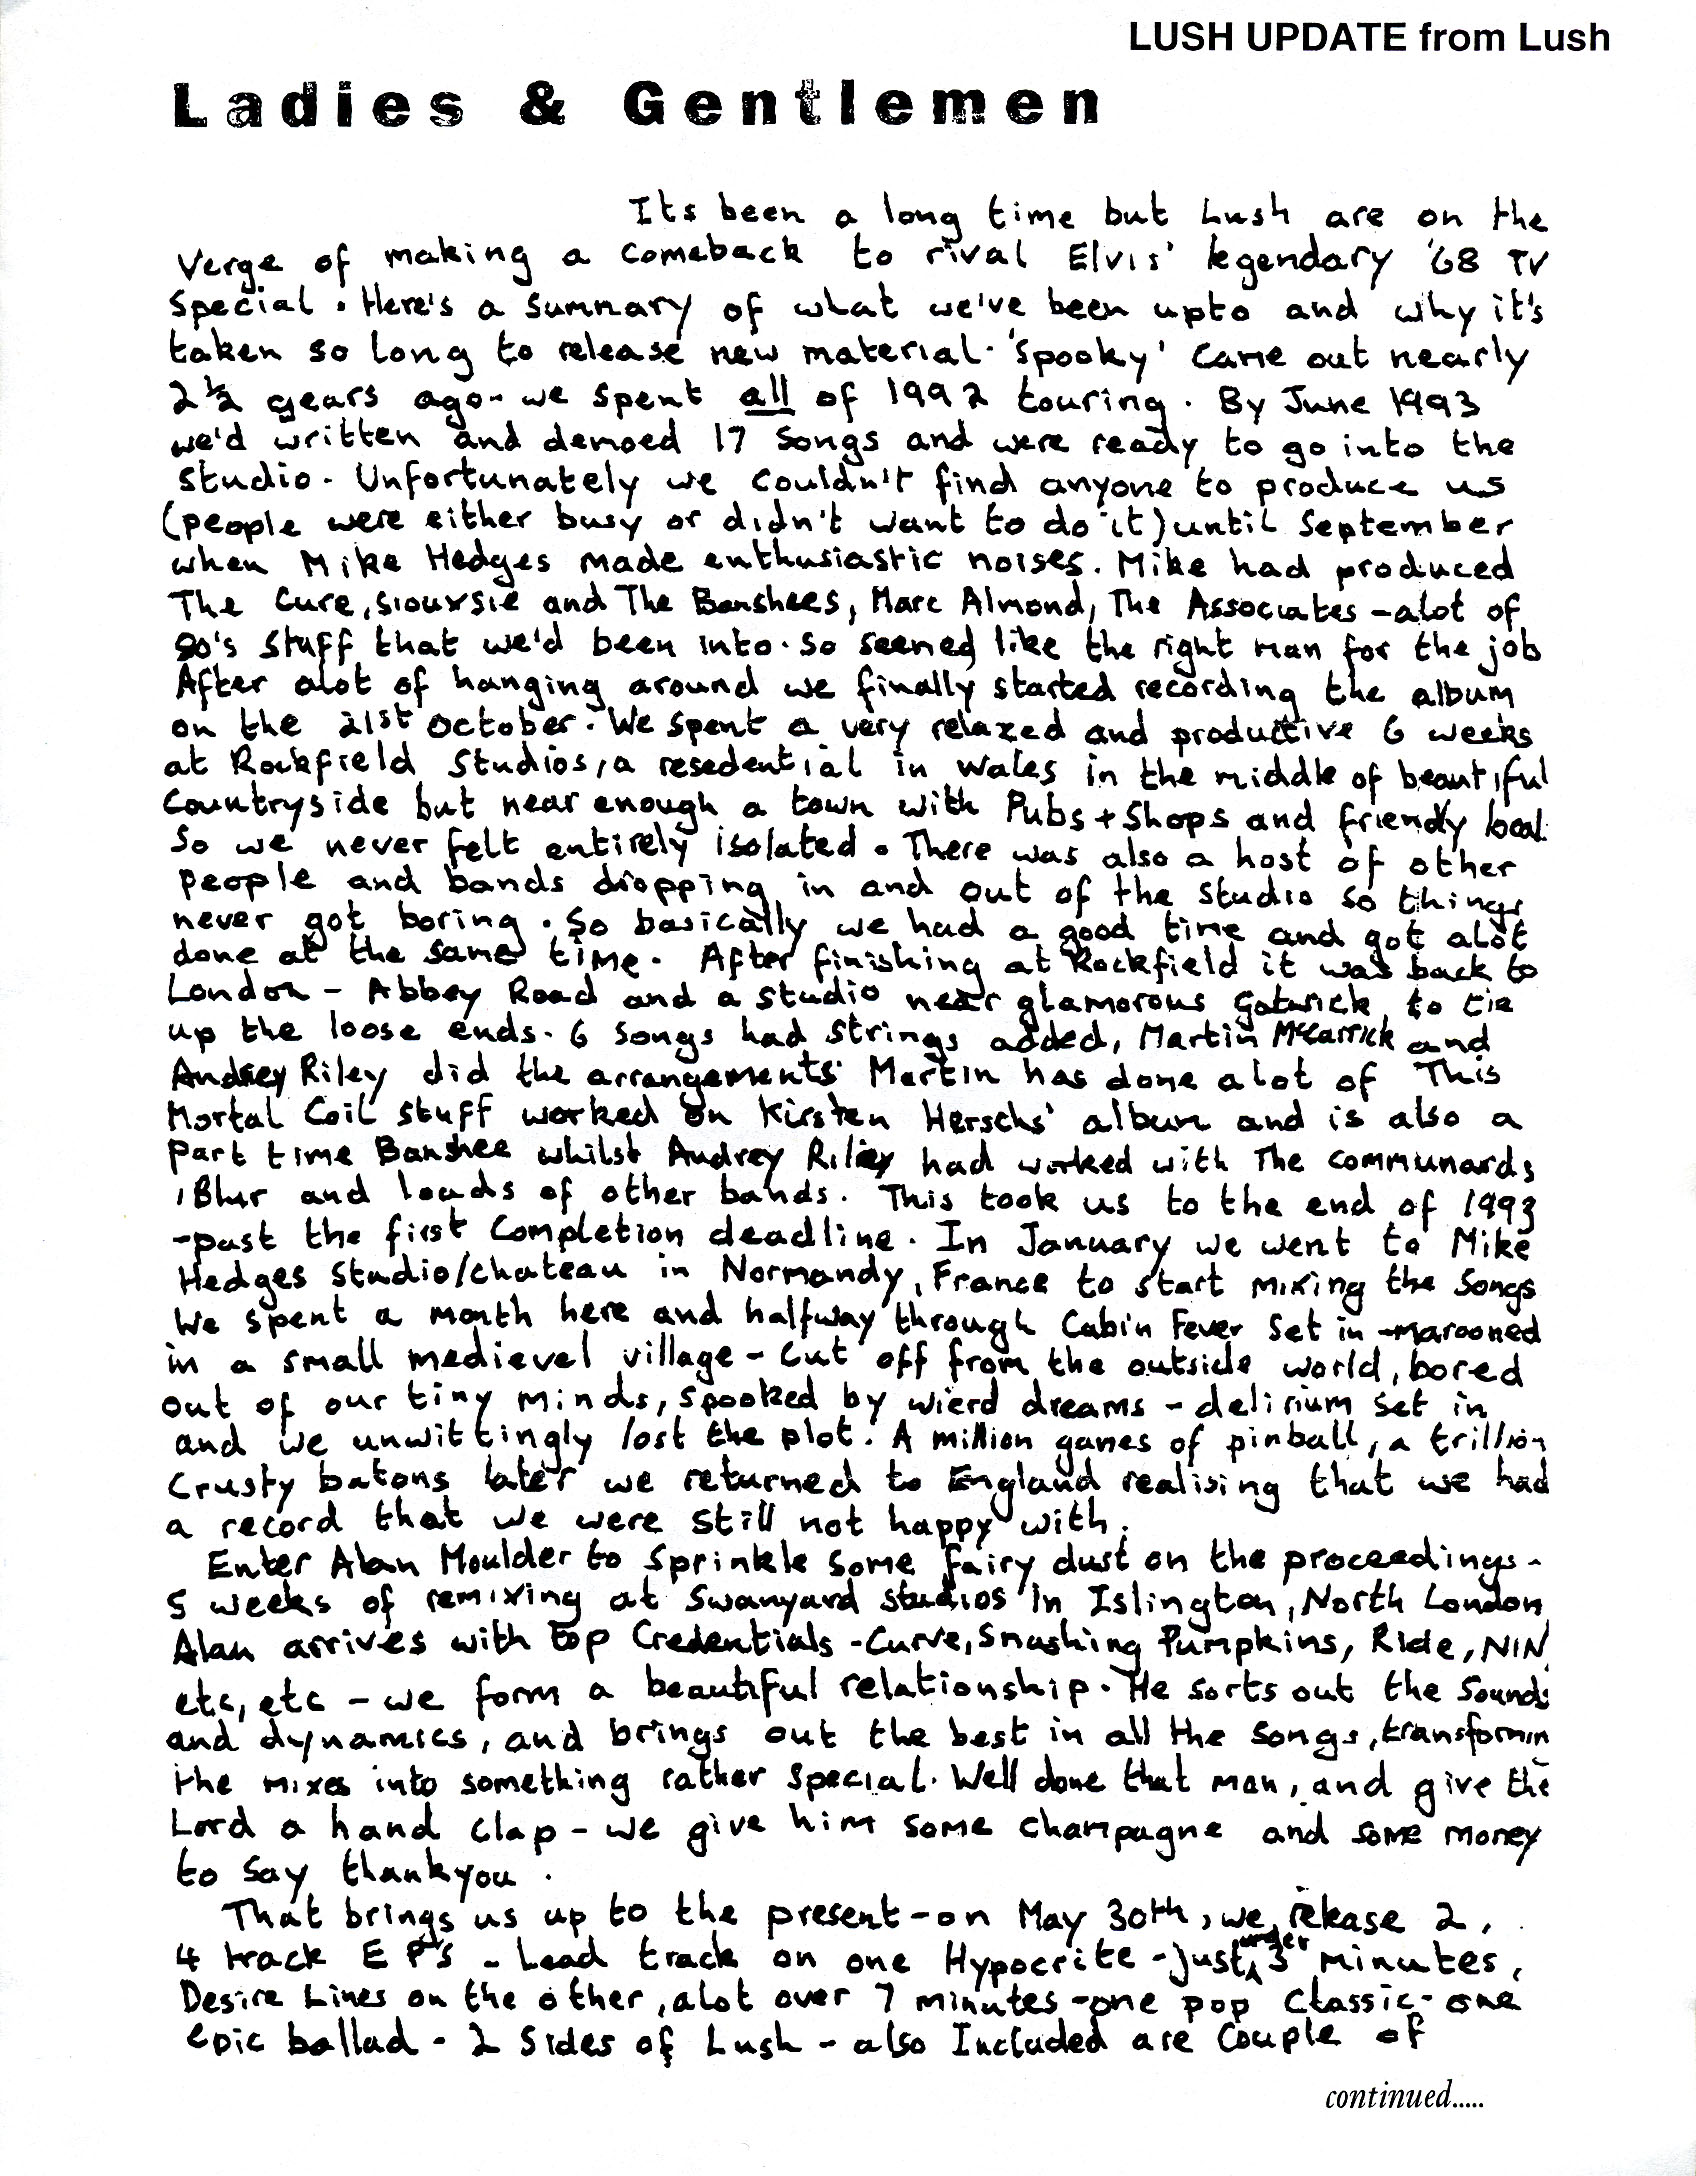 LUSH UPDATE from Lush
Ladies & Gentlemen
Its been a long time but Lush are on the
Verge of making a comeback to rival Elvis' legendary '68 TV
Special. Here's a summary of what we've been upto and why it's
taken so long to release new material. 'Spooky' came out nearly
2 1/2 years ago - we spent all of 1992 touring. By June 1993
we'd written and demoed 17 songs and were ready to go into the
studio. Unfortunately we couldn't find anyone to produce us
(people were either busy or didn't want to do it) until September
when Mike Hedges made enthusiastic noises. Mike had produced
The Cure, Siouxsie and The Banshees, Marc Almond, The Associates - alot of
80's stuff that we'd been into. So seemed like the right man for the job
After alot of hanging around we finally started recording the album
on the 21st October. We spent a very relaxed and productive 6 weeks
at Rockfield Studios, a resedential in Wales in the middle of beautiful
Countryside but near enough a town with Pubs + Shops and friendly local
So we never felt entirely isolated. There was also a host of other
people and bands dropping in and out of the studio so things
never got boring. So basically we had a good time and got alot
done at the same time. After finishing at Rockfield it was back to
London - Abbey Road and a studio near glamorous Gatwick to tie
up the loose ends. 6 songs had strings added, Martin McCarrick and
Audrey Riley did the arrangements. Martin has done alot of This
Mortal Coil stuff worked on Kirsten Herschs' album and is also a
part time Banshee whilst Audrey Riley had worked with The Communards
, Blur and loads of other bands. This took us to the end of 1993
- past the first completion deadline. In January we went to Mike
Hedges studio/chateau in Normandy, France to start mixing the songs
We spent a month here and halfway through Cabin Fever set in - marooned
in a small medievel village - cut off from the outside world, bored
out of our tiny minds, spooked by wierd dreams - delirium set in
and we unwittingly lost the plot. A million games of pinball, a trillion
crusty batons later we returned to England realising that we had
a record that we were still not happy with.
Enter Alan Moulder to sprinkle some fairy dust on the proceedings -
5 weeks of remixing at Swanyard studios in Islington, North London
Alan arrives with top credentials - Curve, Smashing Pumpkins, Ride, NIN
etc, etc - we form a beautiful relationship. He sorts out the sounds
and dynamics, and brings out the best in all the songs, transformin
the mixes into something rather special. Well done that man, and give the
Lord a hand clap - we give him some champagne and some money
to say thankyou.
That brings us up to the present - on May 30th, we release 2,
4 track E P's - Lead track on one Hypocrite - just under 3 minutes,
Desire Lines on the other, alot over 7 minutes - one pop classic - one
epic ballad - 2 sides of Lush - also Included are couple of
continued.....